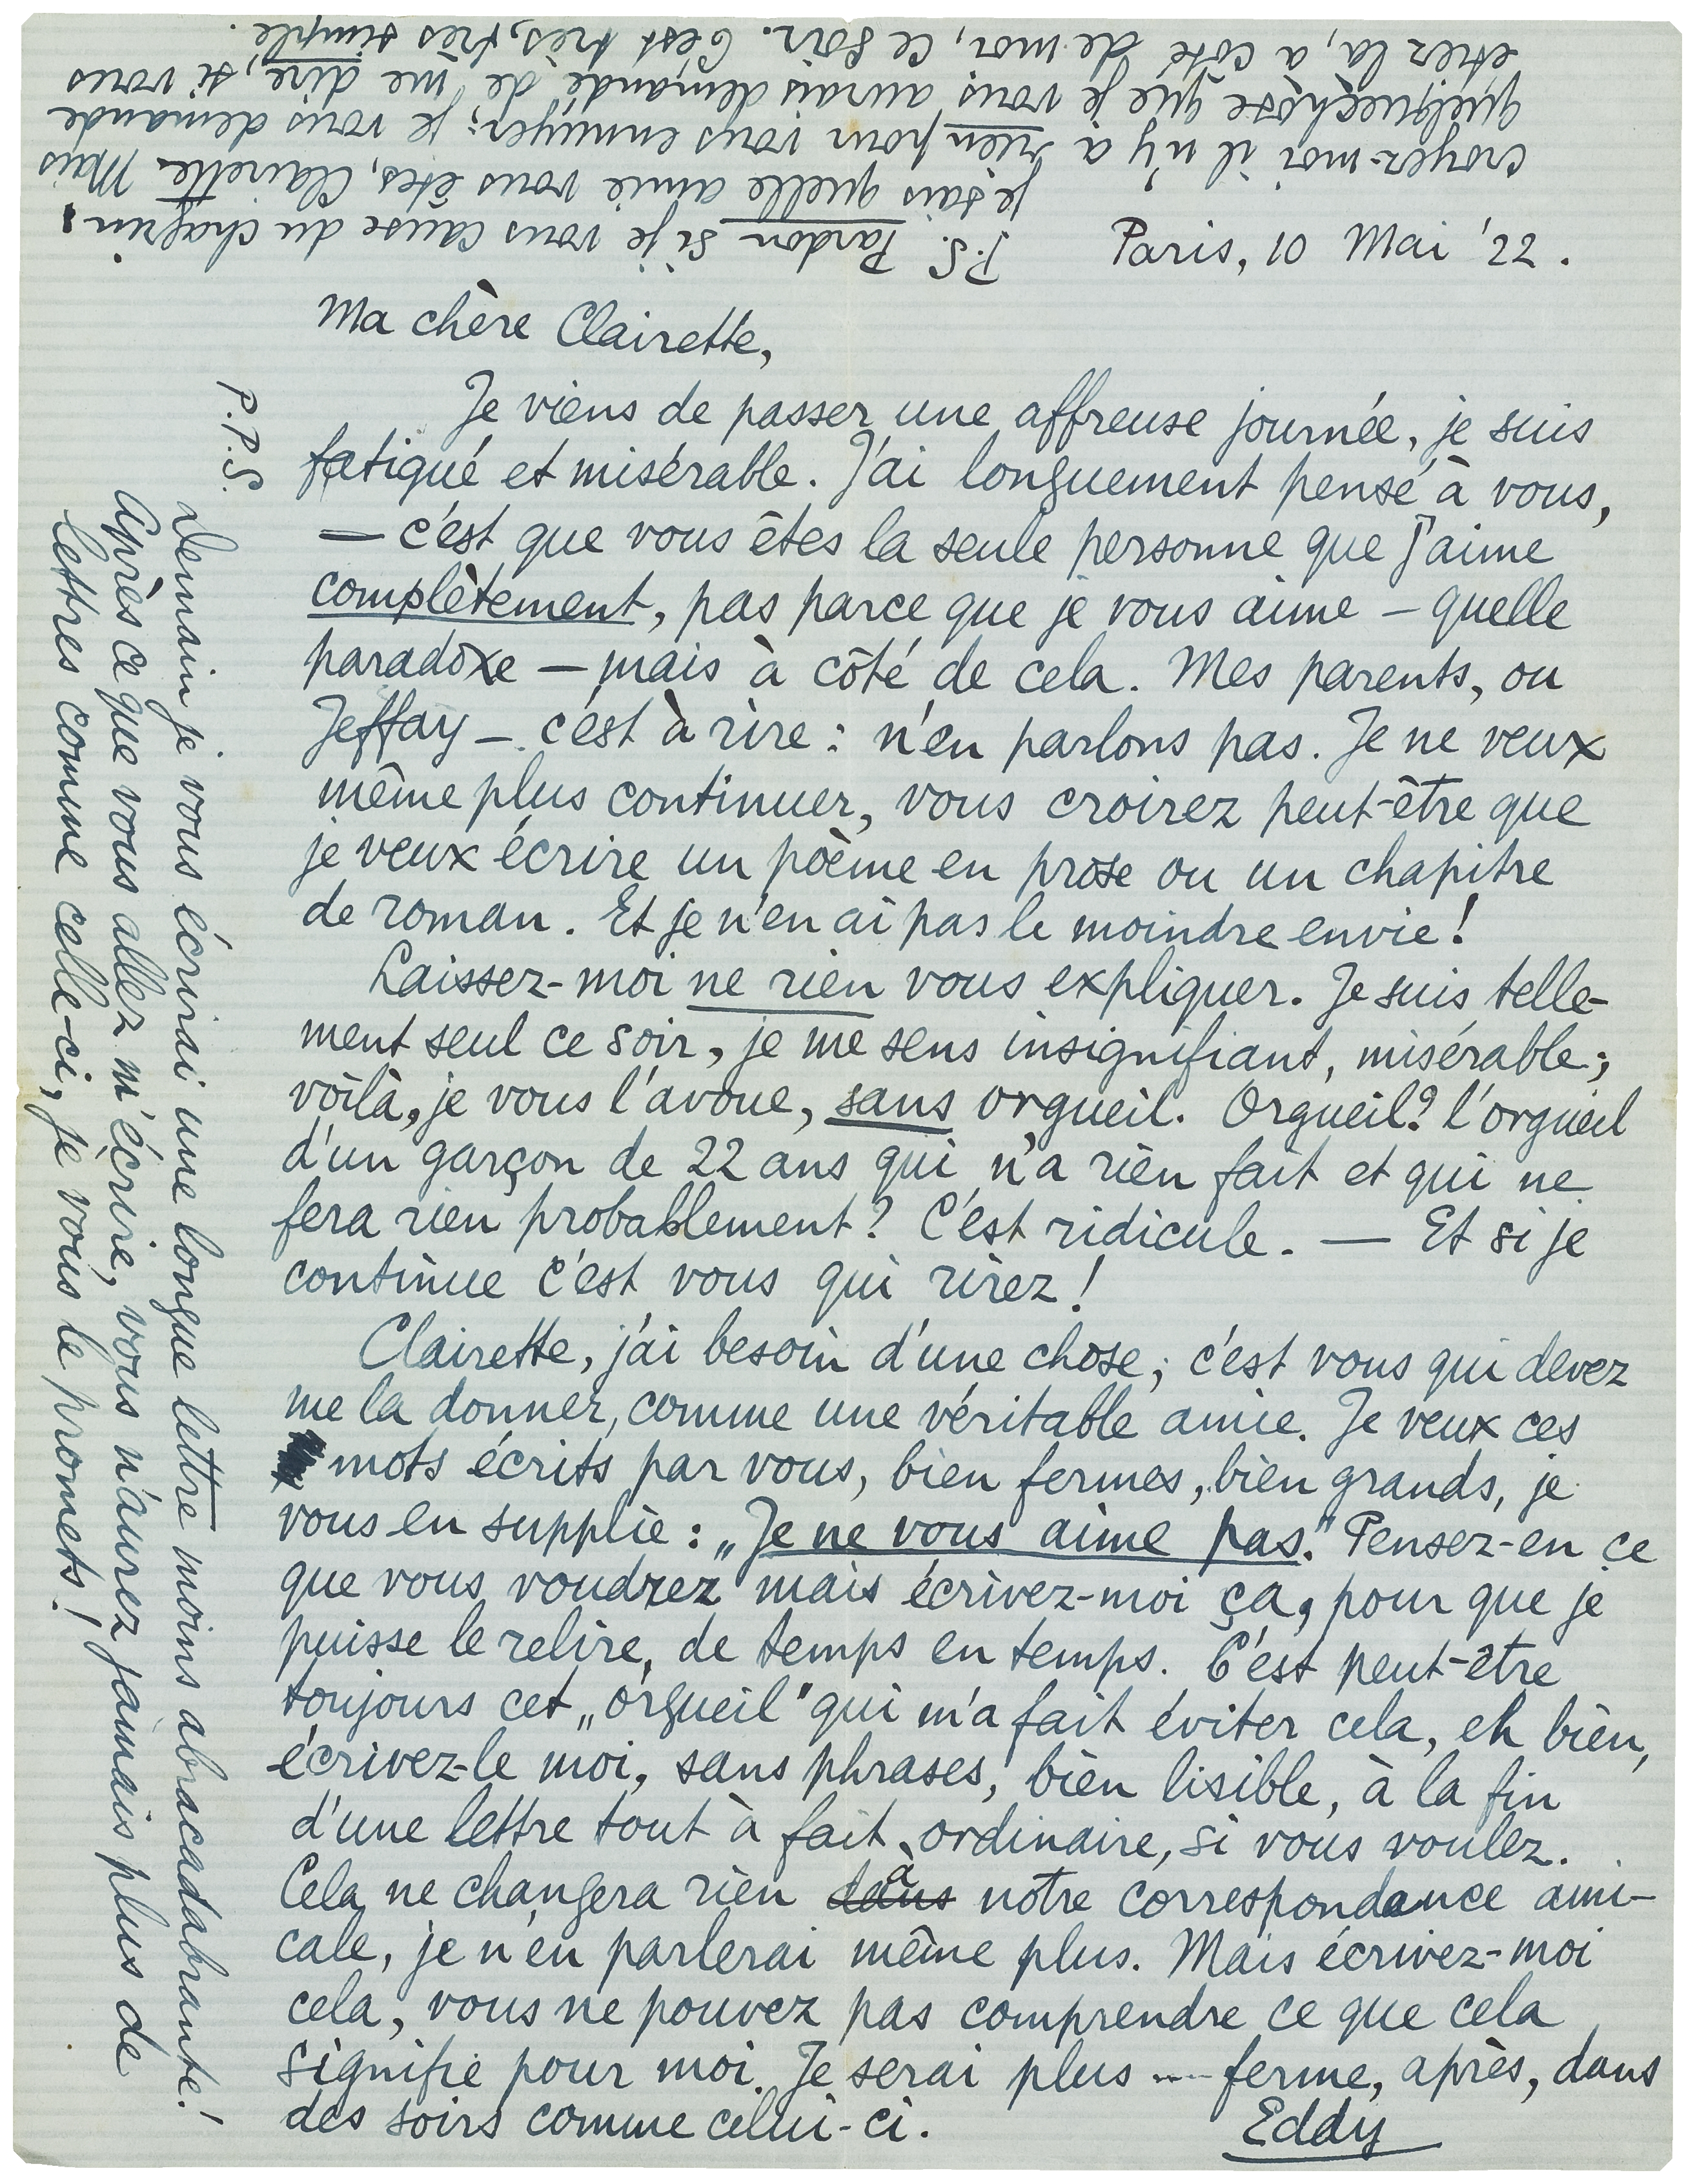 Paris, 10 Mai '22.
Ma chère Clairette,
Je viens de passer une affreuse journée, je suis
fatigué et misérable. J'ai longuement pensé à vous,
— c'est que vous êtes la seule personne que j'aime
complètement, pas parce que je vous aime – quelle
paradoxe – mais à côté de cela. Mes parents, ou
Jeffay – c'est à rire : n'en parlons pas. Je ne veux
même plus continuer, vous croirez peut-être que
je veux écrire un poème en prose ou un chapitre
de roman. Et je n'en ai pas le moindre envie !
Laissez-moi ne rien vous expliquer. Je suis telle-
ment seul ce soir, je me sens insignifiant, misérable ;
voilà, je vous l'avoue, sans orgueil. Orgueil? l'orgueil
d'un garçon de 22 ans qui n'a rien fait et qui ne
fera rien probablement? C'est ridicule. — Et si je
continue c'est vous qui rirez !
Clairette, j'ai besoin d'une chose ; c'est vous qui devez
me la donner, comme une véritable amie. Je veux ces
mots écrits par vous, bien fermes, bien grands, je
vous en supplie : „Je ne vous aime pas." Pensez-en ce
que vous voudrez mais écrivez-moi ça, pour que je
puisse le relire, de temps en temps. C'est peut-être
toujours cet „orgueil" qui m'a fait éviter cela, eh bien,
écrivez-le moi, sans phrases, bien lisible, à la fin
d'une lettre tout à fait ordinaire, si vous voulez.
Cela ne changera rien dans à notre correspondance ami-
cale, je n'en parlerai même plus. Mais écrivez-moi
cela, vous ne pouvez pas comprendre ce que cela
signifie pour moi. Je serai plus .... ferme, après, dans
des soirs comme celui-ci.
Eddy
P.S. Pardon si je vous cause du chagrin,
je sais quelle amie vous êtes, Clairette. Mais
croyez-moi il n'y a rien pour vous ennuyer ; je vous demande
quelquechose que je vous aurais demandé de me dire, si vous
étiez là, à côté de moi, ce soir. C'est très, très simple.
P.P.S.
Demain je vous écrirai une longue lettre moins abracadabrante !
Après ce que vous allez m'écrire, vous n'aurez jamais plus de
lettres comme celle-ci, je vous le promets !